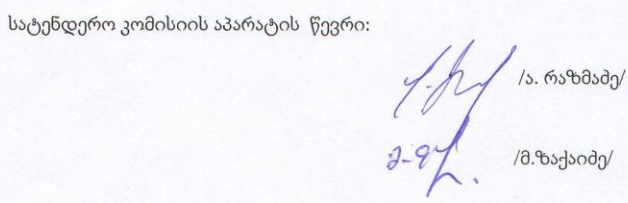 სატენდერო კომისიის აპარატის წევრი:
/ა. რაზმაძე/
/მ.ზაქაიძე/